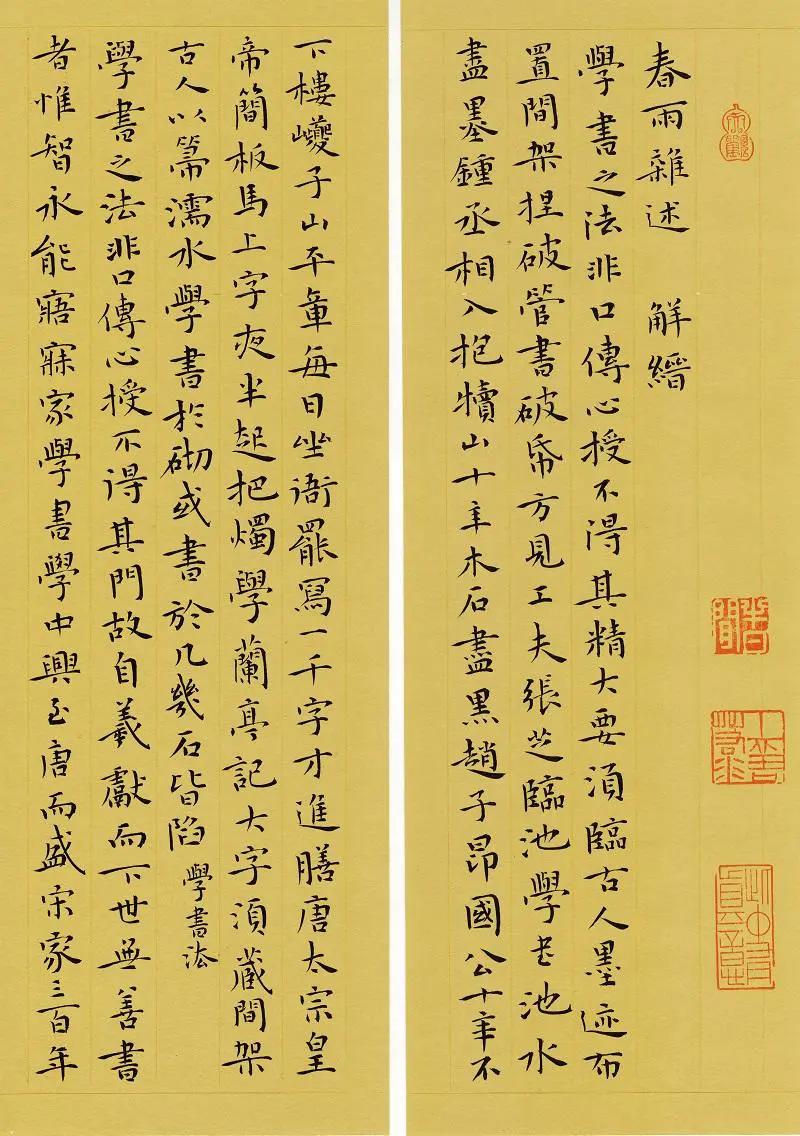 春雨雜述　解縉
學書之法非口傳心授不得其精大要須臨古人墨迹布
置間架捏破管書破帋方見工夫張芝臨池學書池水
盡墨鍾丞相入抱犢山十年木石盡黑趙子昂國公十年不
下樓巙子山平章每日坐衙罷寫一千字才進膳唐太宗皇
帝簡板馬上字夜半起把燭學蘭亭記大字須藏間架
古人以箒濡水學書於砌或書於几幾石皆陷　學書法
學書之法非口傳心授不得其門故自羲獻而下世無善書
者惟智永能寤寐家學書學中興至唐而盛宋家三百年